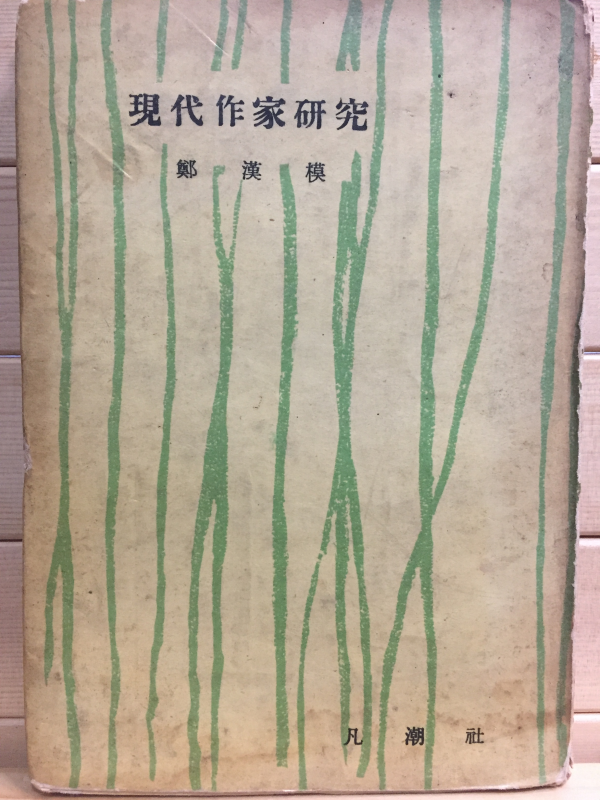 現代作家研究
鄭漢模
凡潮社